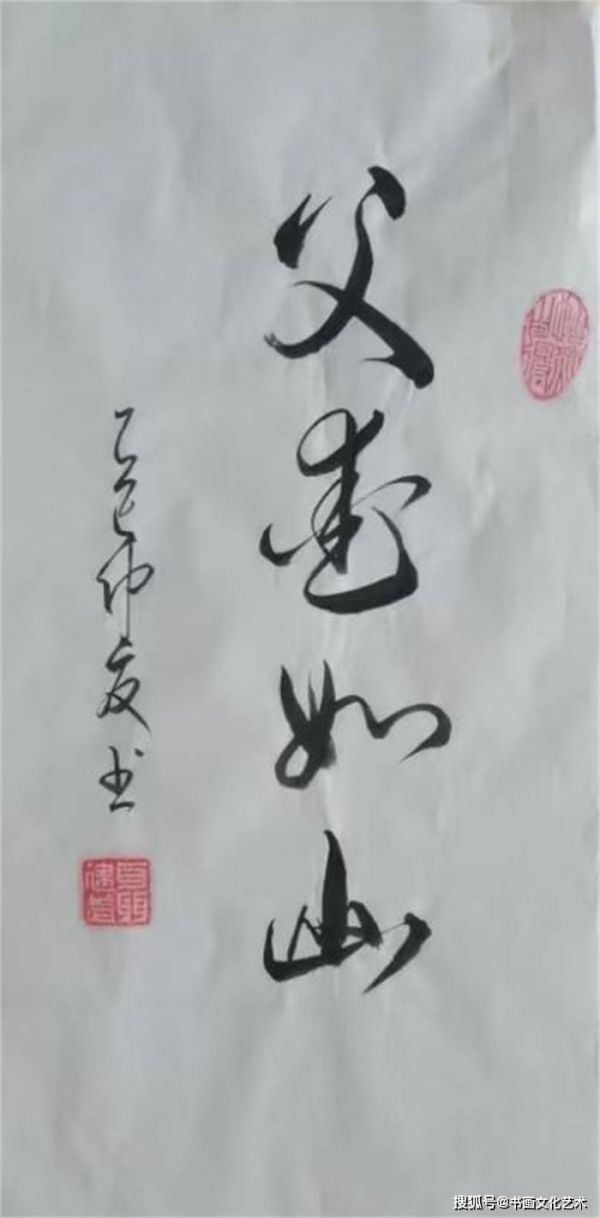 父爱如山
乙巳仲夏书
搜狐号@书画文化艺术